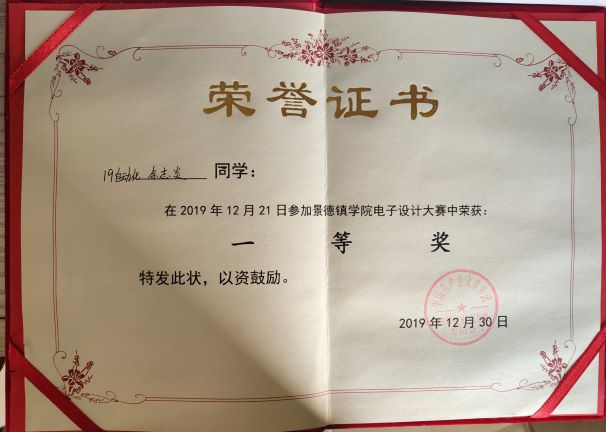 荣誉证书
19自动化 余志炎 同学：
在2019年12月21日参加景德镇学院电子设计大赛中荣获：
一等奖
特发此状，以资鼓励。
中国共产主义青年团
2019年12月30日